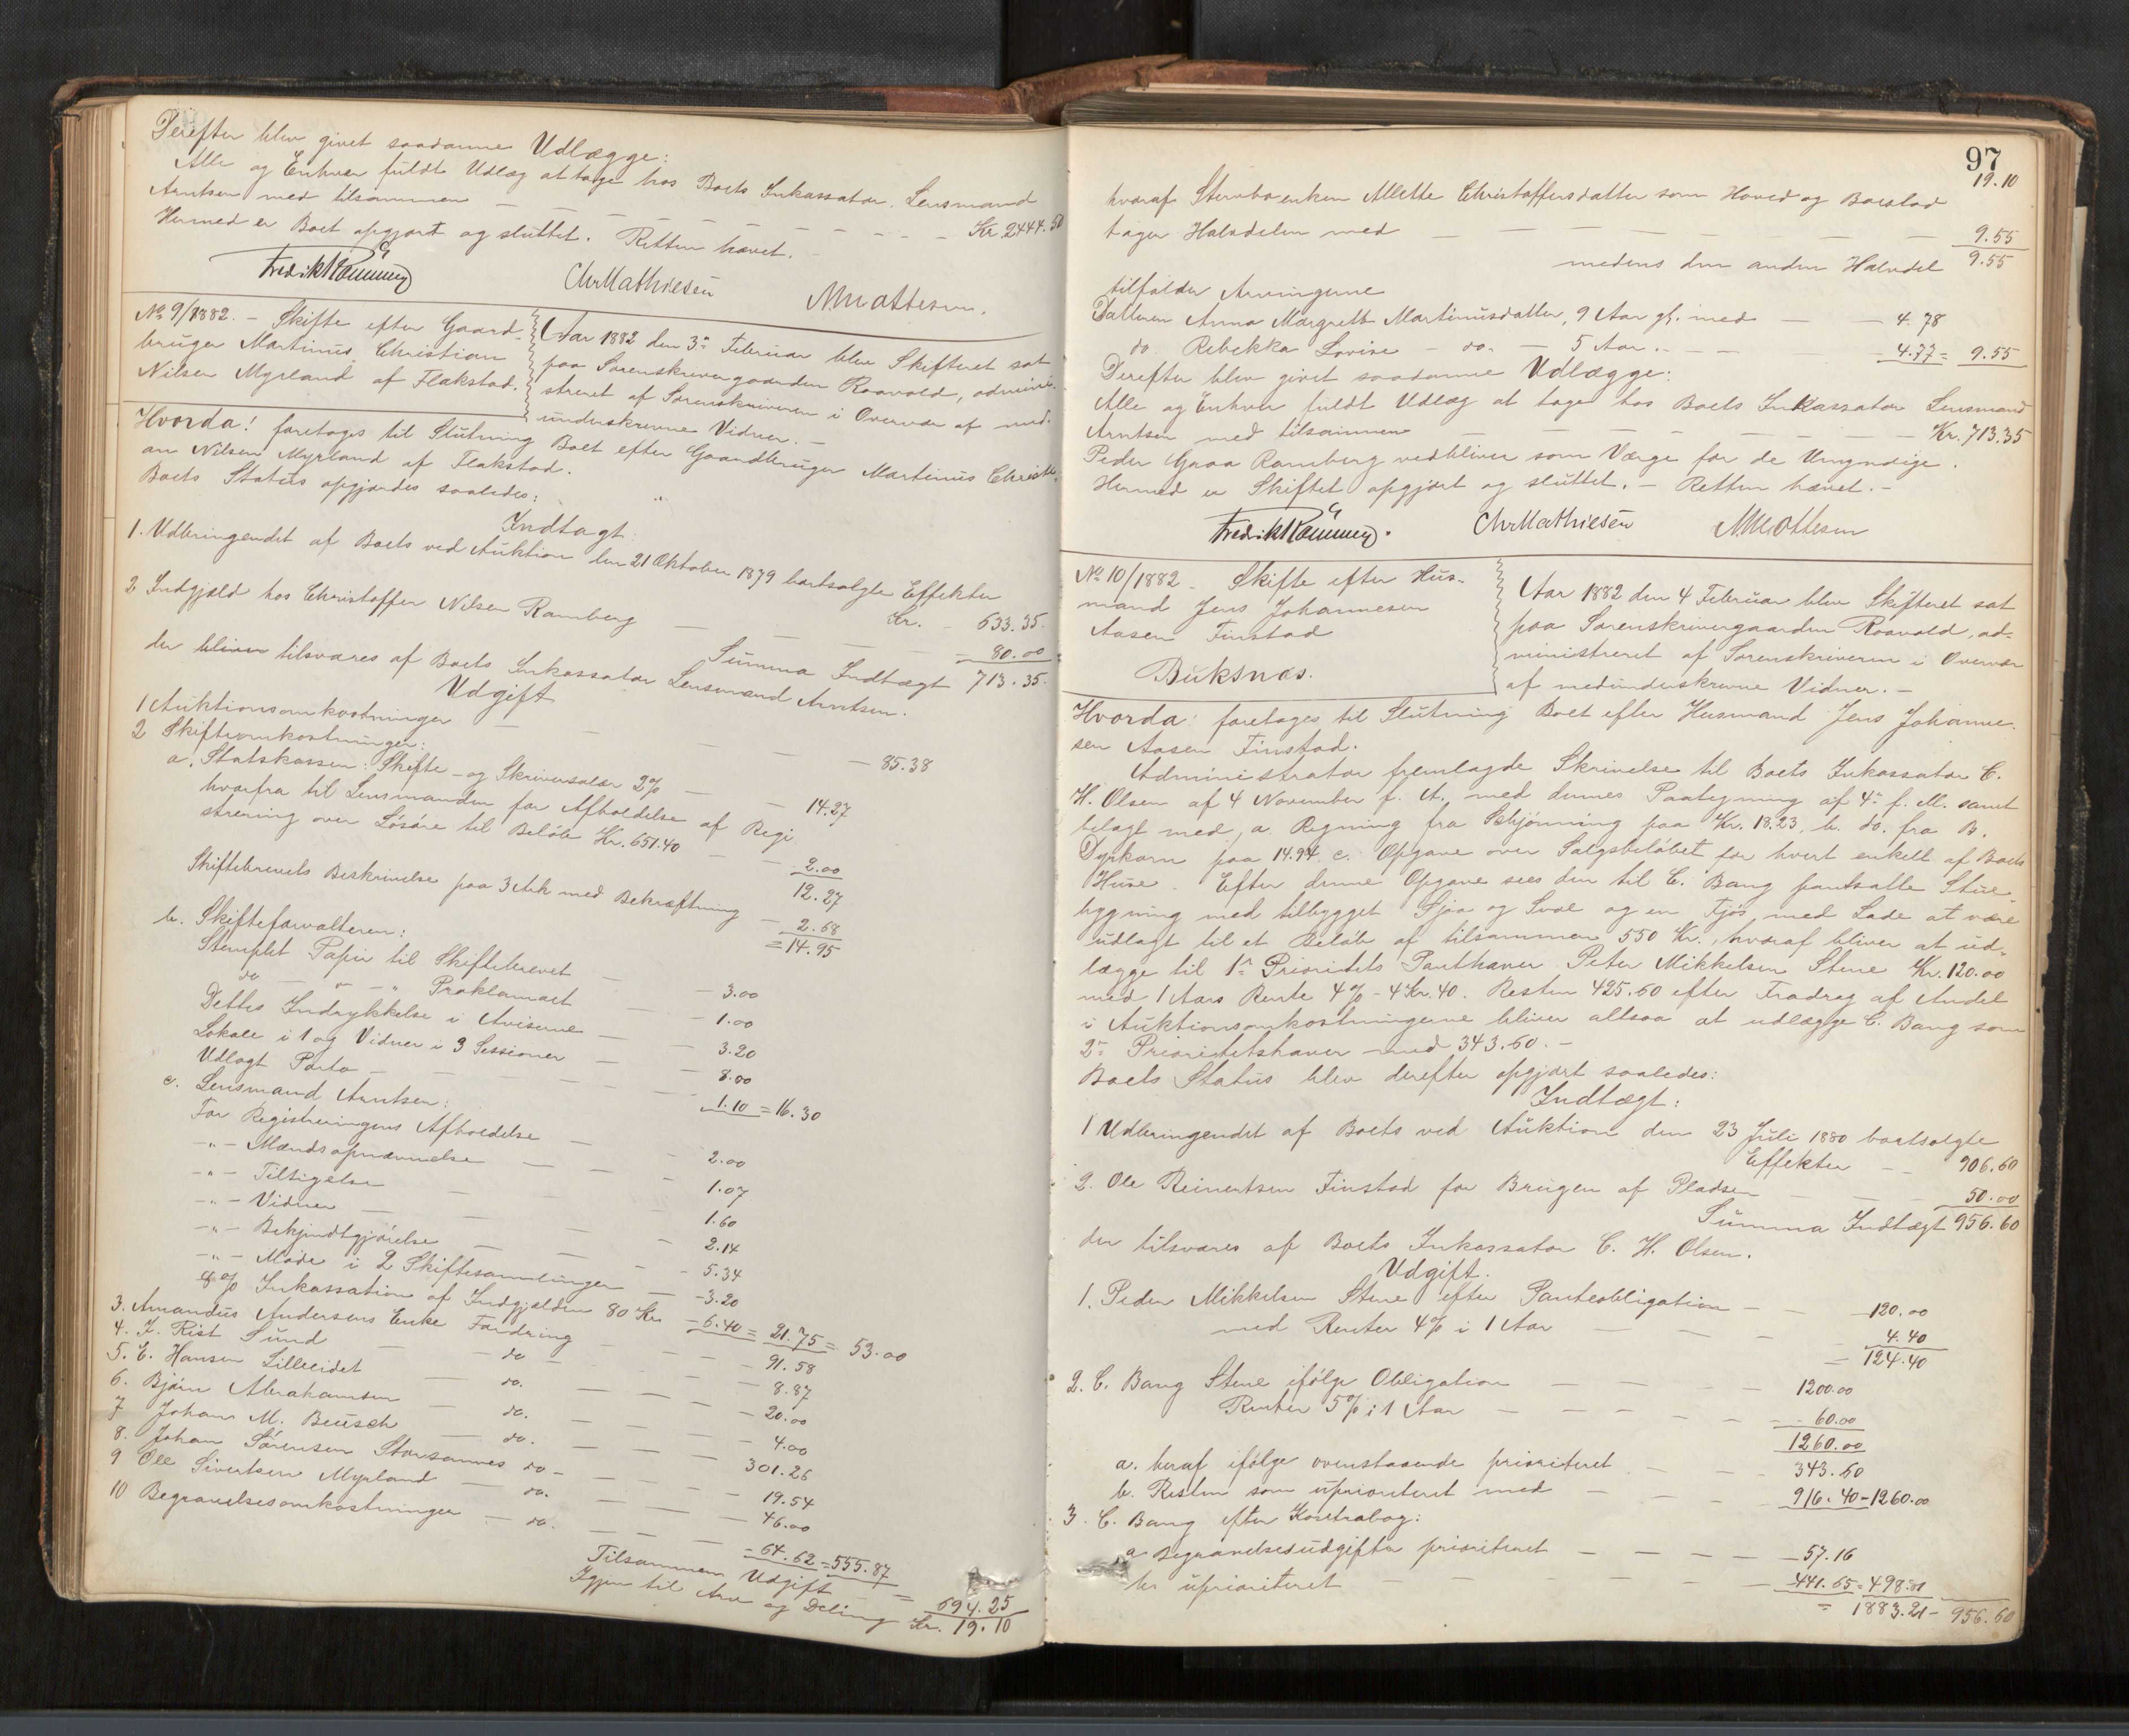 Derefter blev givet saadanne Udlægge:
Alle og Enhver fuldt Udlæg at tage hos Boets Inkassator Lensmand
Arntsen med tilsammen — — — — — — Kr. 2444.50
Hermed er Boet opgjort og sluttet. Retten hævet. –
Chr Mathiesen
No 9/1882. – Skifte efter Gaard-
bruger Martinus Christian
Nilsen Myrland af Flakstad.
Aar 1882 den 3die Februar blev Skifteret sat
paa Sorenskrivergaarden Raavold, admini-
streret af Sorenskriveren i Overvær af med-
underskrevne Vidner. –
Hvorda! foretoges til Slutning Boet efter Gaardbruger Martinus Christi-
an Nilsen Myrland af Flakstad.
Boets Status opgjordes saaledes:
Indtægt
1. Udbringendet af Boets ved Auktion den 21 Oktober 1879 bortsolgte Effekter
Kr. – 633.35.
2 Indgjæld hos Christoffer Nilsen Ramberg — — — 80.00
Summa Indtægt 713.35.
der bliver tilsvares af Boets Inkassator Lensmand Arntsen.
Udgift
1 Auktionsomkostninger — — — — 85.38
2 Skifteomkostninger:
a. Statskassen: Skifte- og Skriversalær 2% — — 14.27
hvorfra til Lensmanden for Afholdelse af Regi
strering over Løsøre til Beløb Kr. 651.40 — — 2.00
12.27
Skiftebrevets Beskrivelse paa 3 Ark med Bekræftning — 2.68
= 14.95
b. Skifteforvalteren:
Stemplet Papir til Skiftebrevet — — 3.00
do — " — " Proklamaet — — 1.00
Dettes Indrykkelse i Aviserne — — 3.20
Lokale i 1 og Vidner i 3 Sessioner — — 8.00
Udlagt Porto — — — — 1.10 = 16.30
c. Lensmand Arntsen:
For Registreringens Afholdelse — — 2.00
–"– Mændsopnævnelse — — — 1.07
–"– Tilsigelse — — — 1.60
–"– Vidner — — — 2.14
–"– Bekjendtgjørelse — — — 5.34
–"– Møde i 2 Skiftesamlinger — – 3.20
8% Inkassation af Indgjælden 80 Kr – 6.40 = 21.75 = 53.00
3. Amandus Andersens Enke Fordring — — — 91.58
4. J. Rist Sund — do — — — 8.87
5. E. Hansen Lilleeidet — do. — — — 20.00
6. Bjørn Abrahamsen — do. — — — 4.00
7 Johan M. Beusch — do. — — — 301.26
8. Johan Sørensen Storsannes do – — — 19.54
9 Ole Sivertsen Myrland — do. — — — 46.00
10 Begravelsesomkostninger — do. — — — 64.62 = 555.87
Tilsammen Udgift — = 694.25
Igjen til Arv og Deling Kr. 19.10
97
19.10
hvoraf Stervboenken Allette Christoffersdatter som Hoved og Boeslod
tager Halvdelen med — — — — — 9.55
medens den anden Halvdel 9.55
tilfalder Arvingerne
Datteren Anna Margrett Martinusdatter, 9 Aar gl. med — — 4.78
do Rebekka Lovise – do. — 5 Aar. – — — 4.77 = 9.55
Derefter blev givet saadanne Udlægge:
Alle og Enhver fuldt Udlæg at tage hos Boets Inkassator Lensmand
Arntsen med tilsammen — — — — — — Kr. 713.35
Peder Graa Ramberg vedbliver som Værge for de Umyndige.
Hermed er Skiftet opgjort og sluttet. – Retten hævet. –
Chr Mathiesen
No 10/1882 – Skifte efter Hus-
mand Jens Johannesen
Aasen Finstad
Buksnæs.
Aar 1882 den 4 Februar blev Skifteret sat
paa Sorenskrivergaarden Raavold, ad-
ministreret af Sorenskriveren i Overvær
af medunderskrevne Vidner. –
Hvorda! foretoges til Slutning Boet efter Husmand Jens Johanne-
sen Aasen Finstad.
Administrator fremlagde Skrivelse til Boets Inkassator C.
H. Olsen af 4 November f. A. med dennes Paategning af 4de f. M. samt
belagt med, a. Regning fra Schjønning paa Kr. 18.23, b. do. fra B.
Dyrkorn paa 14.94 c. Opgave over Salgsbeløbet for hvert enkelt af Boets
Huse. Efter denne Opgave sees den til C. Bang pantsatte Stue-
bygning med tilbygget Sjaa og Sval og en Fjøs med Lade at være
udlagt til et Beløb af tilsammen 550 Kr., hvoraf bliver at ud-
lægge til 1ste Prioritets Panthaver Peter Mikkelsen Stene Kr. 120.00
med 1 Aars Rente 4% – 4 Kr. 40. Resten 425.60 efter Fradrag af Andel
i Auktionsomkostningerne bliver altsaa at udlægge C. Bang som
2den Prioritetshaver – med 343.60. –
Boets Status blev derefter opgjort saaledes:
Indtægt:
1 Udbringendet af Boets ved Auktion den 23 Juli 1880 bortsolgte
Effekter — — 906.60
2. Ole Reinertsen Finstad for Brugen af Pladsen — — — 50.00
Summa Indtægt 956.60
der tilsvares af Boets Inkassator C. H. Olsen.
Udgift.
1. Peder Mikkelsen Stene efter Panteobligation — — 120.00
med Renter 4% i 1 Aar — — — 4.40
= 124.40
2. C. Bang Stene ifølge Obligation — — — 1200.00
Renter 5% i 1 Aar — — — — — 60.00
1260.00
a. heraf ifølge ovenstaaende prioriteret — — — 343.60
b. Resten som uprioriteret med — — — 916.40 – 1260.00
3. C. Bang efter Kontrabog:
a Begravelsesudgifter prioriteret — — — — 57.16
b. uprioriteret — — — — — 441.65 = 498.81
= 1883.21 – 956.60